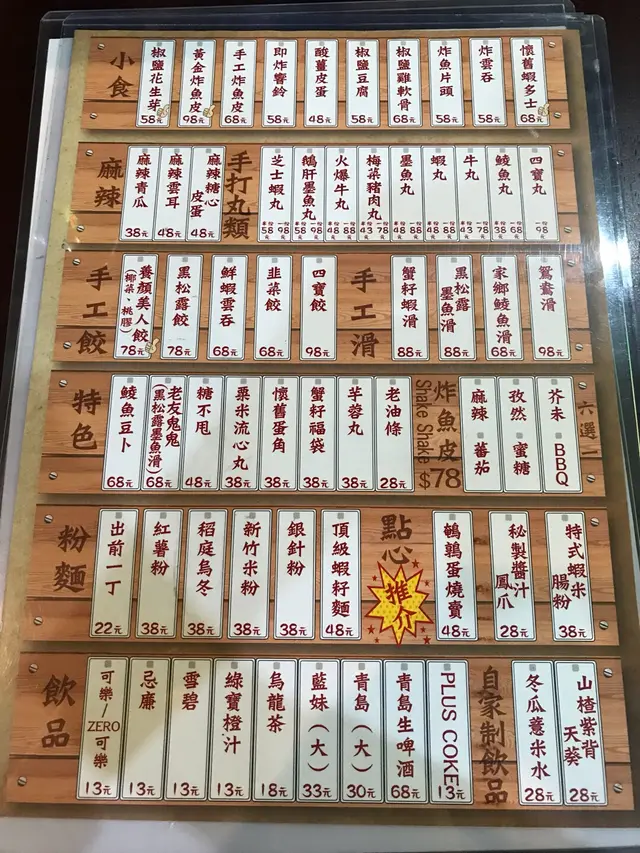 小食
椒鹽花生芽 58元
黃金炸魚皮 98元
手工炸魚皮 68元
即炸響鈴 58元
酸薑皮蛋 48元
椒鹽豆腐 58元
椒鹽雞軟骨 68元
炸魚片頭 58元
炸雲吞 58元
懷舊蝦多士 68元
麻辣
麻辣青瓜 38元
麻辣雲耳 48元
麻辣糖心皮蛋 48元
手打丸類
芝士蝦丸 58 98
鵝肝墨魚丸 58 98
火爆牛丸 48 88
梅菜豬肉丸 43 78
墨魚丸 48 88
蝦丸 48 88
牛丸 43 78
鯪魚丸 38 68
四寶丸 98
手工餃
養顏美人餃(椰菜、桃膠) 78元
黑松露餃 78元
鮮蝦雲吞 68元
韭菜餃 68元
四寶餃 98元
手工滑
蟹籽蝦滑 88元
黑松露墨魚滑 88元
家鄉鯪魚滑 68元
鴛鴦滑 98元
特色
鯪魚豆卜 68元
老友鬼鬼(黑松露墨魚滑) 68元
糖不甩 48元
粟米流心丸 38元
懷舊蛋角 38元
蟹籽福袋 38元
芋蓉丸 38元
老油條 28元
炸魚皮 Shake Shake $78
麻辣 蕃茄
孜然 蜜糖
芥末 BBQ
六選一
粉麵
出前一丁 22元
紅薯粉 38元
稻庭烏冬 38元
新竹米粉 38元
銀針粉 38元
頂級蝦籽麵 48元
點心
推介
鵪鶉蛋燒賣 48元
秘製醬汁鳳爪 28元
特式蝦米腸粉 38元
飲品
可樂/ZERO可樂 13元
忌廉 13元
雪碧 13元
綠寶橙汁 13元
烏龍茶 18元
藍妹(大) 33元
青島(大) 30元
青島生啤酒 68元
PLUS COKE 13元
自家制飲品
冬瓜薏米水 28元
山楂紫背天葵 28元